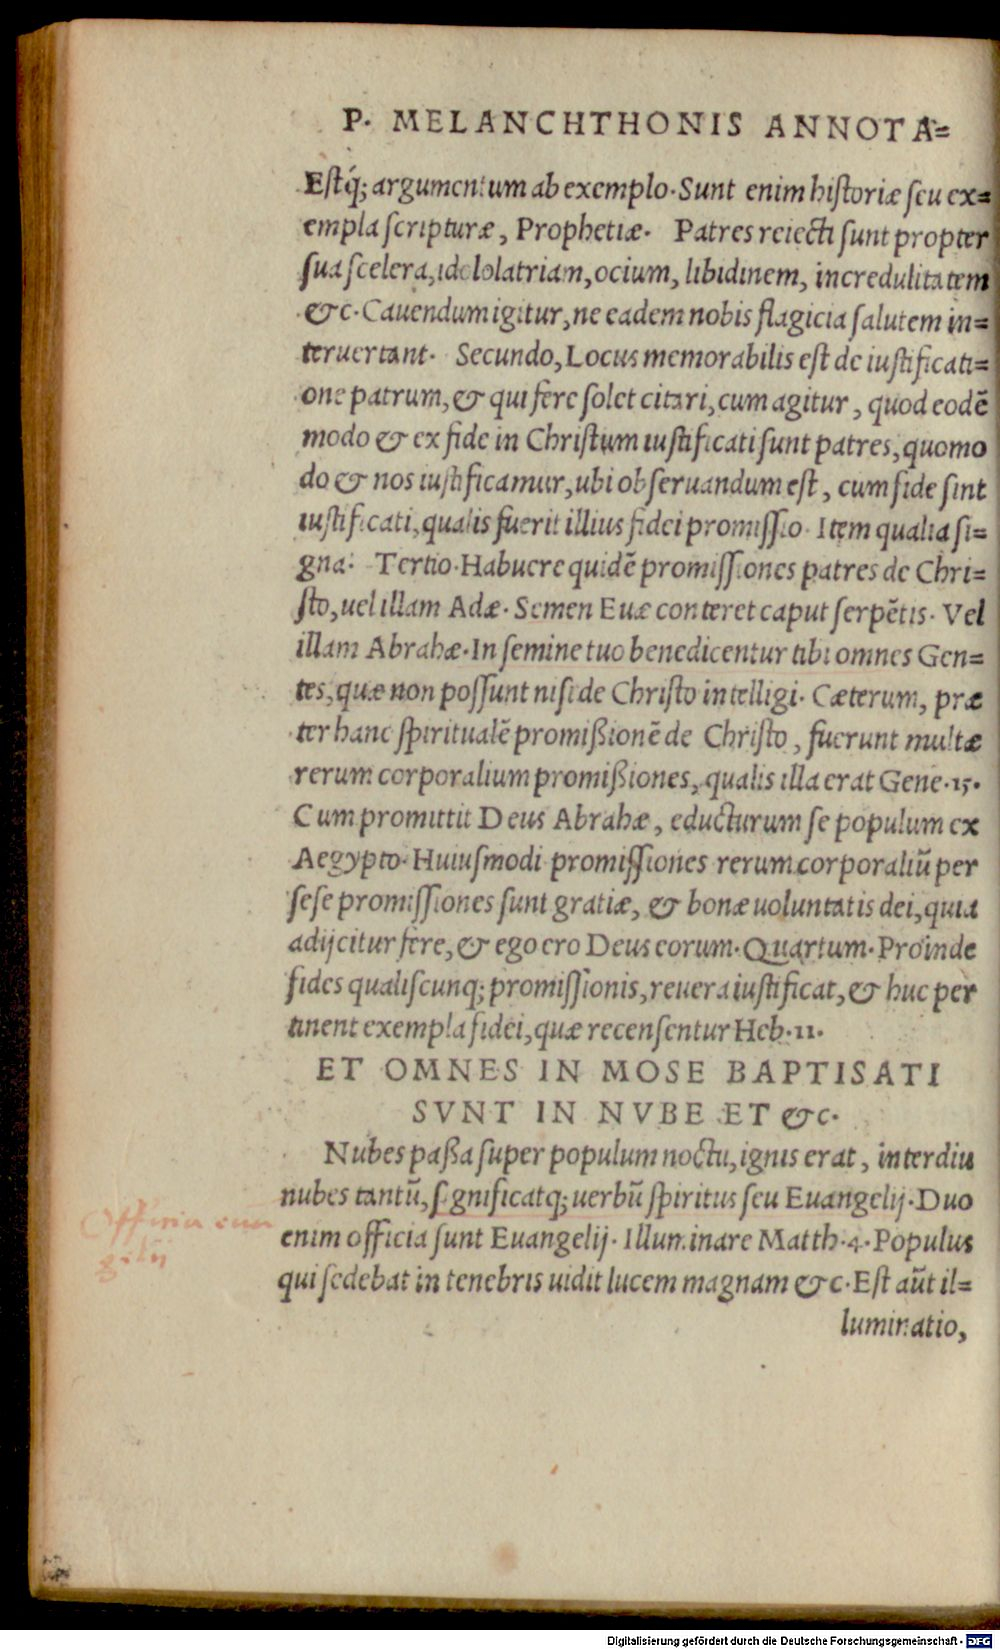 P. MELANCHTHONIS ANNOTA=
Estq́; argumentum ab exemplo. Sunt enim historiæ seu ex=
empla scripturæ, Prophetiæ. Patres reiecti sunt propter
sua scelera, idololatriam, ocium, libidinem, incredulitatem
&c. Cauendum igitur, ne eadem nobis flagicia salutem in=
teruertant. Secundo, Locus memorabilis est de iustificati=
one patrum, & qui fere solet citari, cum agitur, quod eodē
modo & ex fide in Christum iustificati sunt patres, quomo
do & nos iustificamur, ubi obseruandum est, cum fide sint
iustificati, qualis fuerit illius fidei promissio. Item qualia si=
gna. Tertio. Habuere quidē promissiones patres de Chri=
sto, uel illam Adæ. Semen Euæ conteret caput serpētis. Vel
illam Abrahæ. In semine tuo benedicentur tibi omnes Gen=
tes, quæ non possunt nisi de Christo intelligi. Cæterum, præ
ter hanc spiritualē promißionē de Christo, fuerunt multæ
rerum corporalium promißiones, qualis illa erat Gene. 15.
Cum promittit Deus Abrahæ, educturum se populum ex
Aegypto. Huiusmodi promissiones rerum corporaliū per
sese promissiones sunt gratiæ, & bonæ uoluntatis dei, quia
adijcitur fere, & ego ero Deus eorum. Quartum. Proinde
fides qualiscunq; promissionis, reuera iustificat, & huc per
tinent exempla fidei, quæ recensentur Heb. 11.
ET OMNES IN MOSE BAPTISATI
SVNT IN NVBE ET &c.
Nubes paßa super populum noctu, ignis erat, interdiu
nubes tantū, significatq; uerbū spiritus seu Euangelij. Duo
enim officia sunt Euangelij. Illuminare Matth. 4. Populus
qui sedebat in tenebris uidit lucem magnam &c. Est aūt il=
luminatio,
Officia euan
gelij
Digitalisierung gefördert durch die Deutsche Forschungsgemeinschaft - DFG